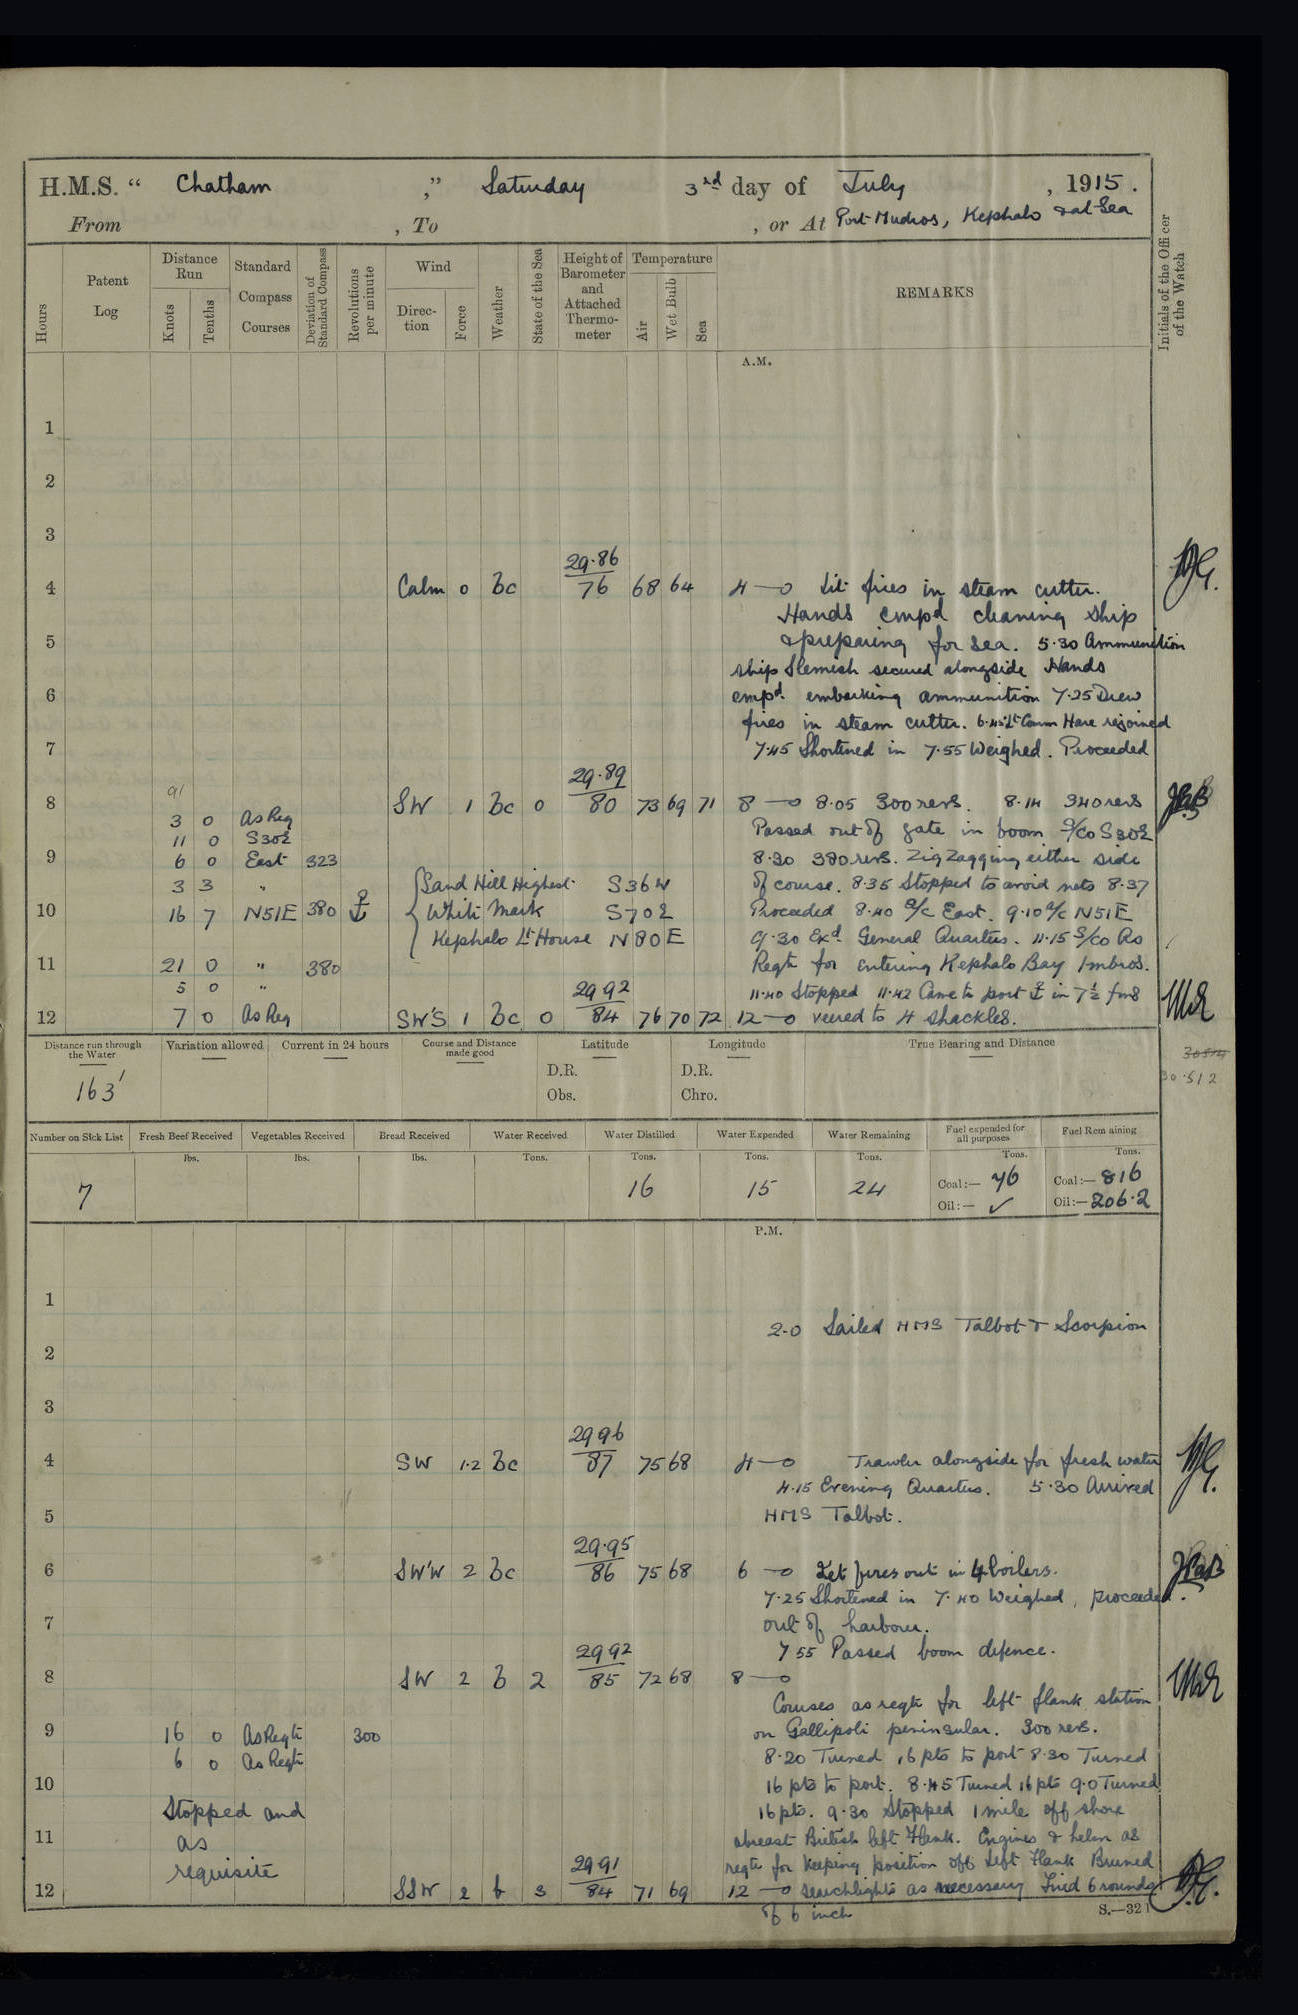 H.M.S. “ Chatham ,” Saturday 3rd day of July , 1915 .
From , To , or At Port Mudros, Kephalo & at Sea
Hours
Patent Log
Distance Run
Knots
Tenths
Standard Compass Courses
Deviation of Standard Compass
Revolutions per minute
Wind
Direc- tion
Force
Weather
State of the Sea
Height of Barometer and Attached Thermo- meter
Temperature
Air
Wet Bulb
Sea
REMARKS
Initials of the Officer of the Watch
A.M.
1
2
3
29.86
4 Calm 0 bc 76 68 64 4 — 0 Lit fires in steam cutter.
Hands empd cleaning ship
5 & preparing for sea. 5.30 Ammunition
ship Flemish secured alongside Hands
6 empd. embarking ammunition 7.25 Drew
fires in steam cutter. 6.45 Lt Comm Hare rejoined
7 7.45 Shortened in 7.55 Weighed. Proceeded
91 29.89
8 SW 1 bc 0 80 73 69 71 8 — 0 8.05 300 revs. 8.14 340 revs
3 0 As Req
11 0 S30E Passed out of gate in boom S/Co S30E
9 6 0 East 323 8.30 380 revs. Zig Zagging either side
3 3 " Sand Hill Highest S36W of course. 8.35 Stopped to avoid nets 8.37
10 16 7 N51E 380 White Mark S70E Proceeded 8.40 a/c East. 9.10 a/c N51E
Kephalo Lt House N80E 9.30 Exd General Quarters. 11.15 S/Co As
11 21 0 " 380 Reqte for entering Kephalo Bay Imbros.
5 0 " 29 92 11.40 Stopped 11.42 Came to port ⚓ in 7½ fms
12 7 0 As Req SW'S 1 bc 0 84 76 70 72 12 — 0 veered to 4 shackles.
Distance run through the Water
Variation allowed
Current in 24 hours
Course and Distance made good
Latitude
Longitude
True Bearing and Distance
163'
D.R.
Obs.
D.R.
Chro.
30.512
Number on Sick List
Fresh Beef Received
Vegetables Received
Bread Received
Water Received
Water Distilled
Water Expended
Water Remaining
Fuel expended for all purposes
Fuel Remaining
lbs. lbs. lbs. Tons. Tons. Tons. Tons. Tons. Tons.
7 16 15 24 Coal:— 76 Coal:— 816
Oil:— ✓ Oil:— 206.2
P.M.
1
2.0 Sailed HMS Talbot & Scorpion
2
3
29 96
4 SW 1.2 bc 87 75 68 4 — 0 Trawler alongside for fresh water
4.15 Evening Quarters. 5.30 Arrived
5 HMS Talbot.
29.95
6 SW'W 2 bc 86 75 68 6 — 0 Let fires out in 4 boilers.
7.25 Shortened in 7.40 Weighed, proceeded.
7 out of harbour.
29 92 7 55 Passed boom defence.
8 SW 2 b 2 85 72 68 8 — 0
Courses as reqte for left flank station
9 16 0 As Reqte 300 on Gallipoli peninsular. 300 revs.
6 0 As Reqte 8.20 Turned 16 pts to port 8.30 Turned
10 16 pts to port. 8.45 Turned 16 pts 9.0 Turned
Stopped and 16 pts. 9.30 Stopped 1 mile off shore
11 as abreast British left Flank. Engines & helm as
requisite 29 91 reqte for keeping position off Left Flank Burned
12 SSW 2 b 3 84 71 69 12 — 0 searchlights as necessary Fired 6 rounds
of 6 inch
S.—321